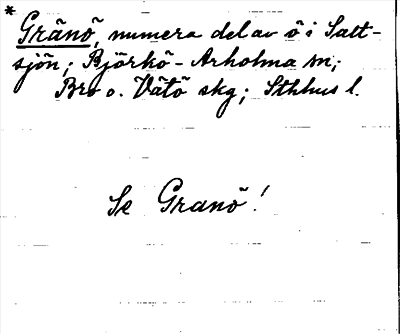 * Gränö, numera del av ö i Salt-
sjön; Björkö-Arholma sn;
Bro o. Vätö skg; Sthlms l.
Se Granö!